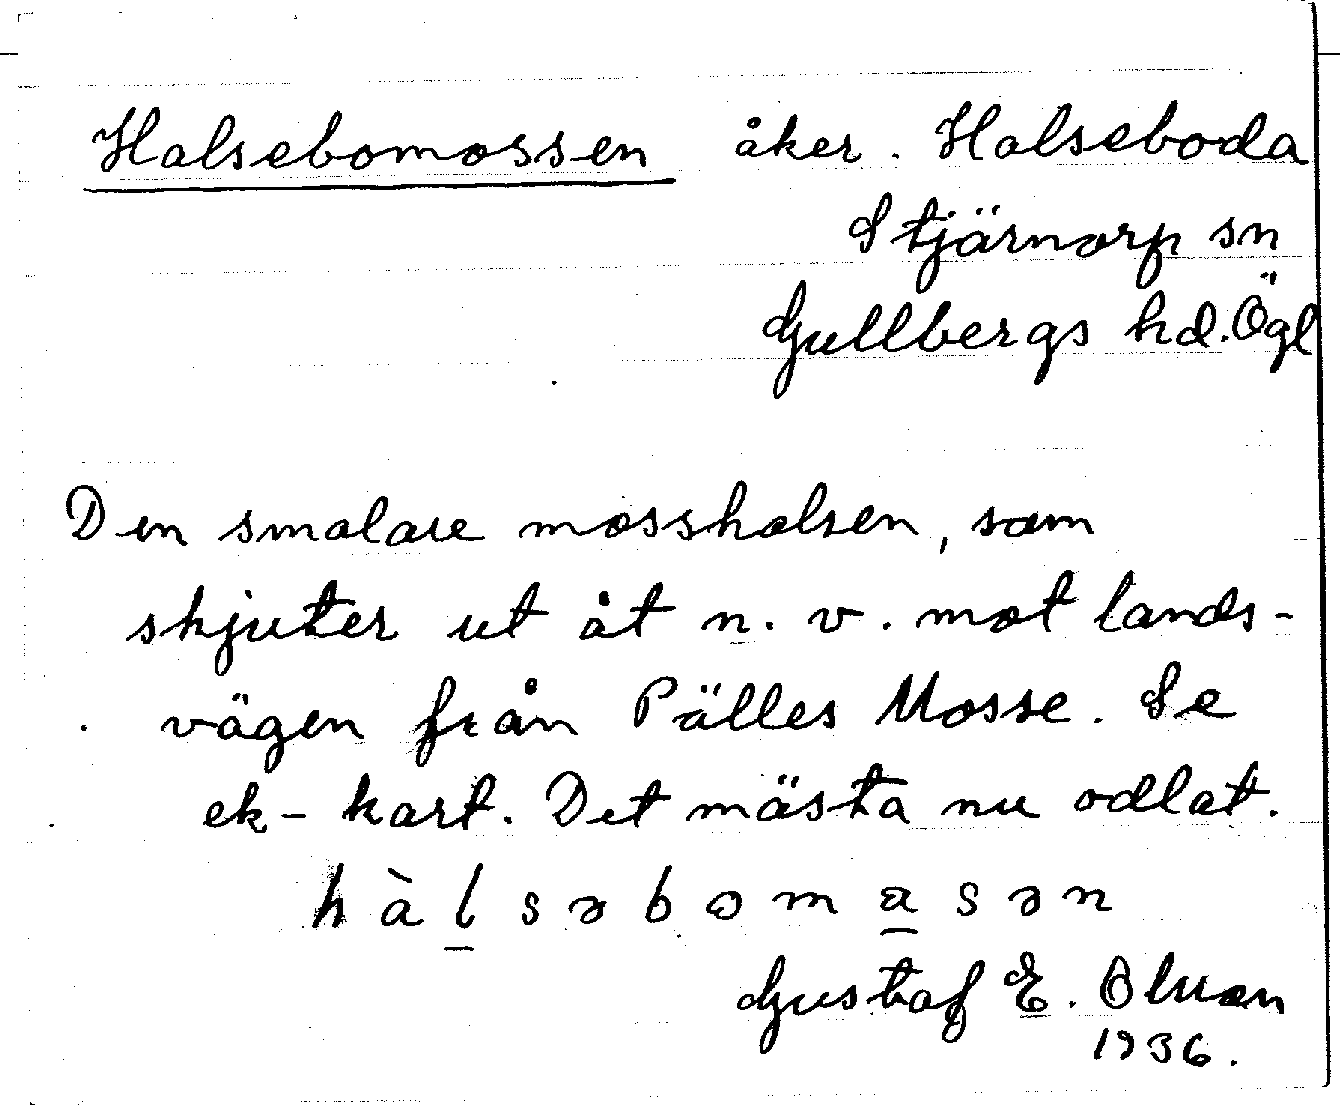 Halsebomossen åker. Halseboda
Stjärnorp sn
Gullbergs hd. Ögl
Den smalare mosshalsen, som
skjuter ut åt n. v. mot lands-
vägen från Pälles Mosse. Se
ek-kart. Det mästa nu odlat.
hàlsəbomasən
Gustaf E. Olsson
1936.